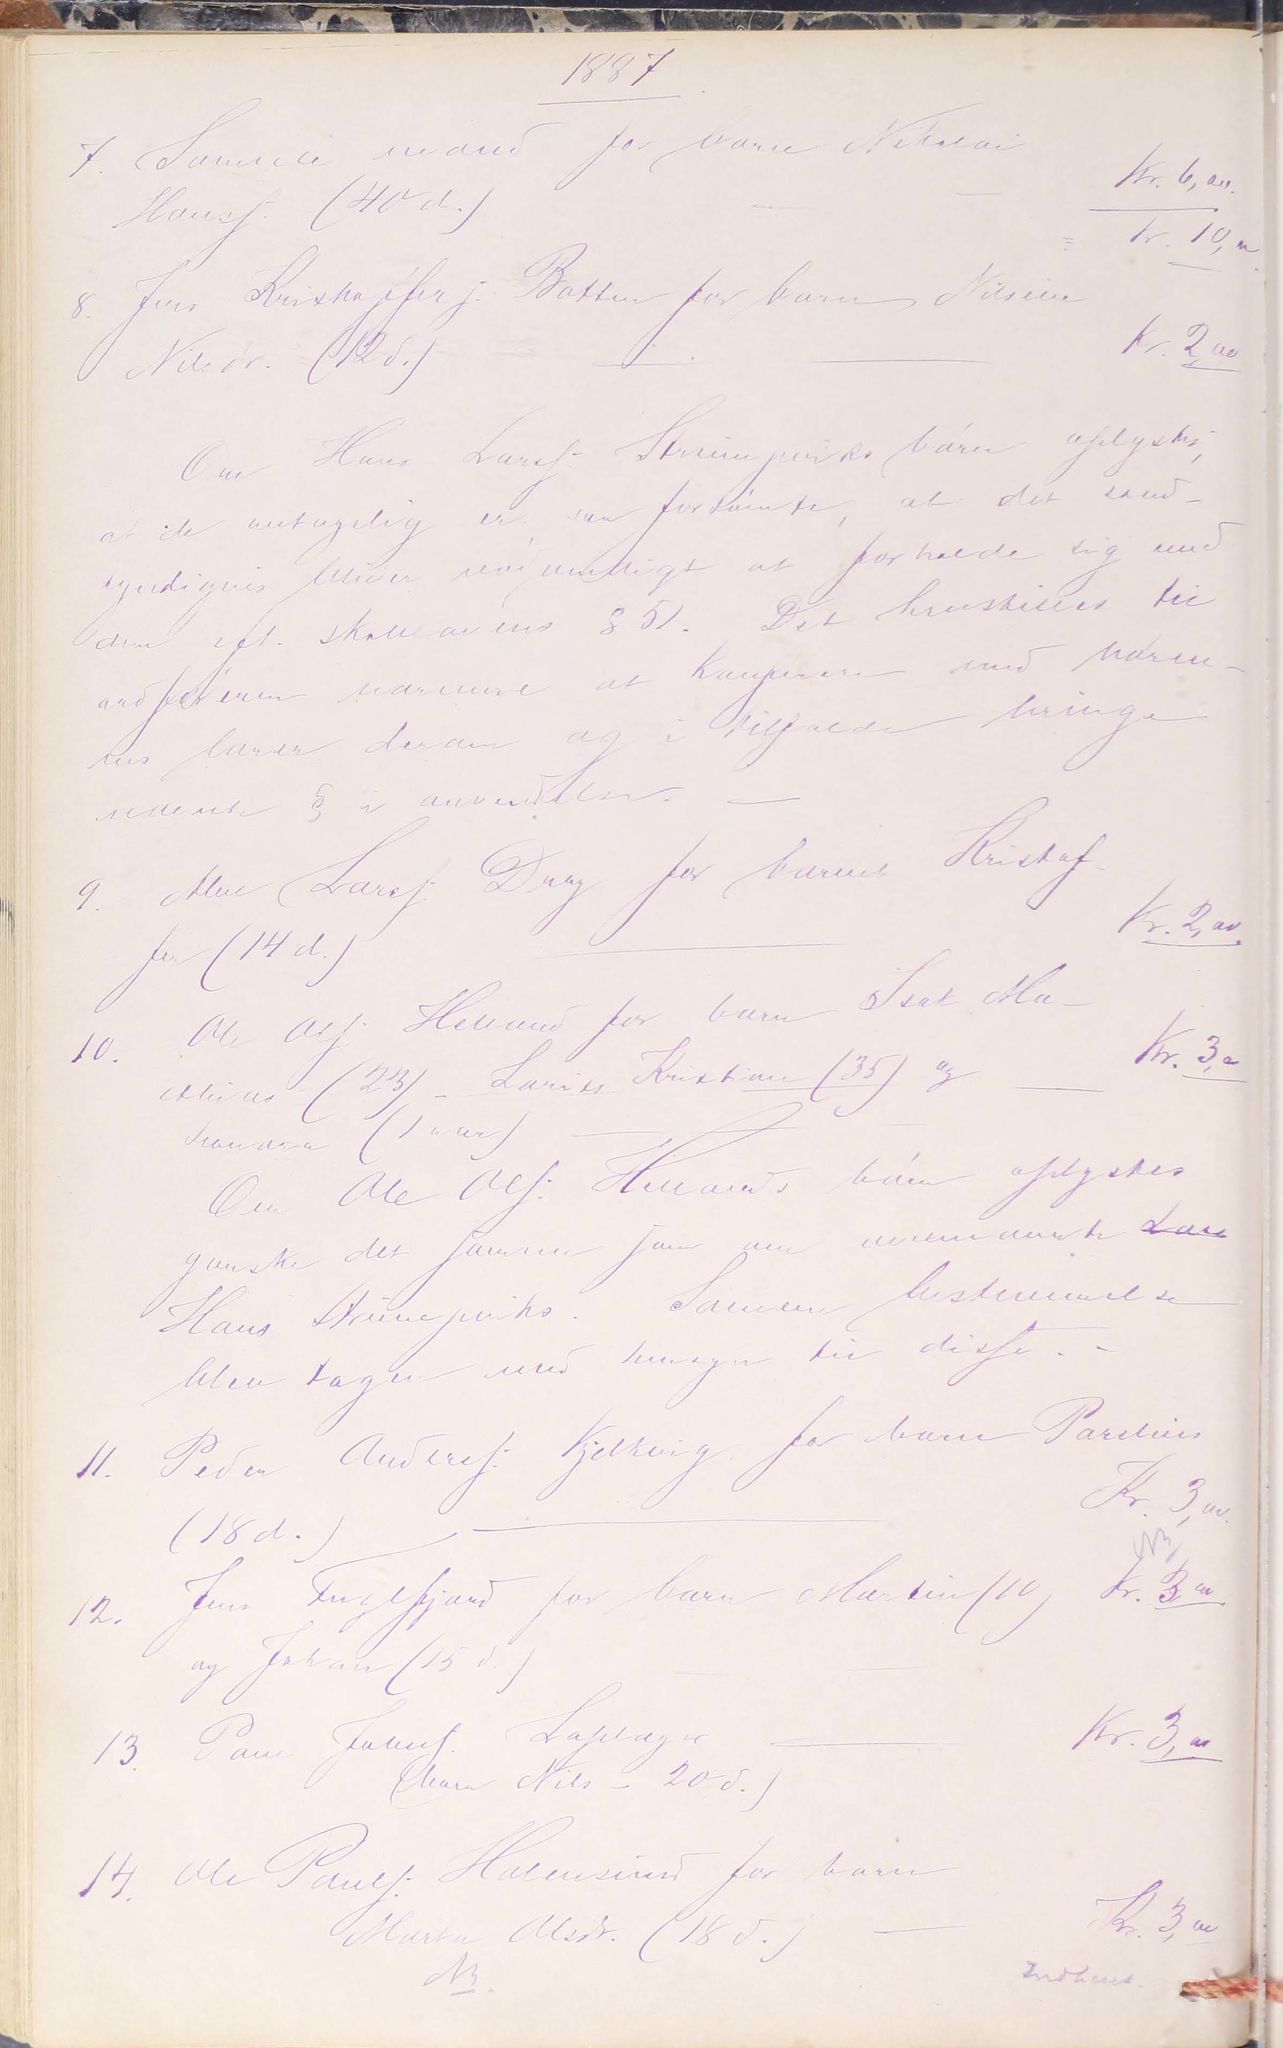 1887
7. Samme mand for barn Nikolai
Hansf. (40 d.) — Kr. 6,00.
= Kr. 10,00
8. Jens Kristofferf. Botten for barn Nilsine
Nilsdr. (12 d.) — Kr. 2,00
Om Hans Larsf. Strumpviks börn oplystes,
at de antagelig er saa forsömte, at det sand-
synligvis bliver nödvendigt at forholde sig med
dem eft. skolelovens § 51. Det henstilles til
ordföreren nærmere at konferere med börne-
nes lærer derom og i tilfælde bringe
nævnte § i anvendelse. —
9. Ole Larsf. Drag for barnet Kristof-
fer (14 d.) — Kr. 2,00
10. Ole Olsf. Helland for barn Isak Ma-
thias (23) – Lavits Kristian (35) og — Kr. 3,00
(1 aar) —
Om Ole Olsf. Hellands börn oplystes
ganske det samme som om ovennævnte Lars
Hans Strumpviks. Samme bestemmelse
blev tagen med hensyn til disse. –
11. Peder Andersf. Kjelkvig for barn Parelius
(18 d.) — Kr. 3,00.
12. Jens Fuglfjord for barn Martin (10) Kr. 3,00
og Johan (15 d.) —
13. Paul Johnsf. — Kr. 3,00
(barn Nils – 20 d.)
14. Ole Paulsf. Halensund for barn
Marta Olsdr. (18 d.) — Kr. 3,00
NB.